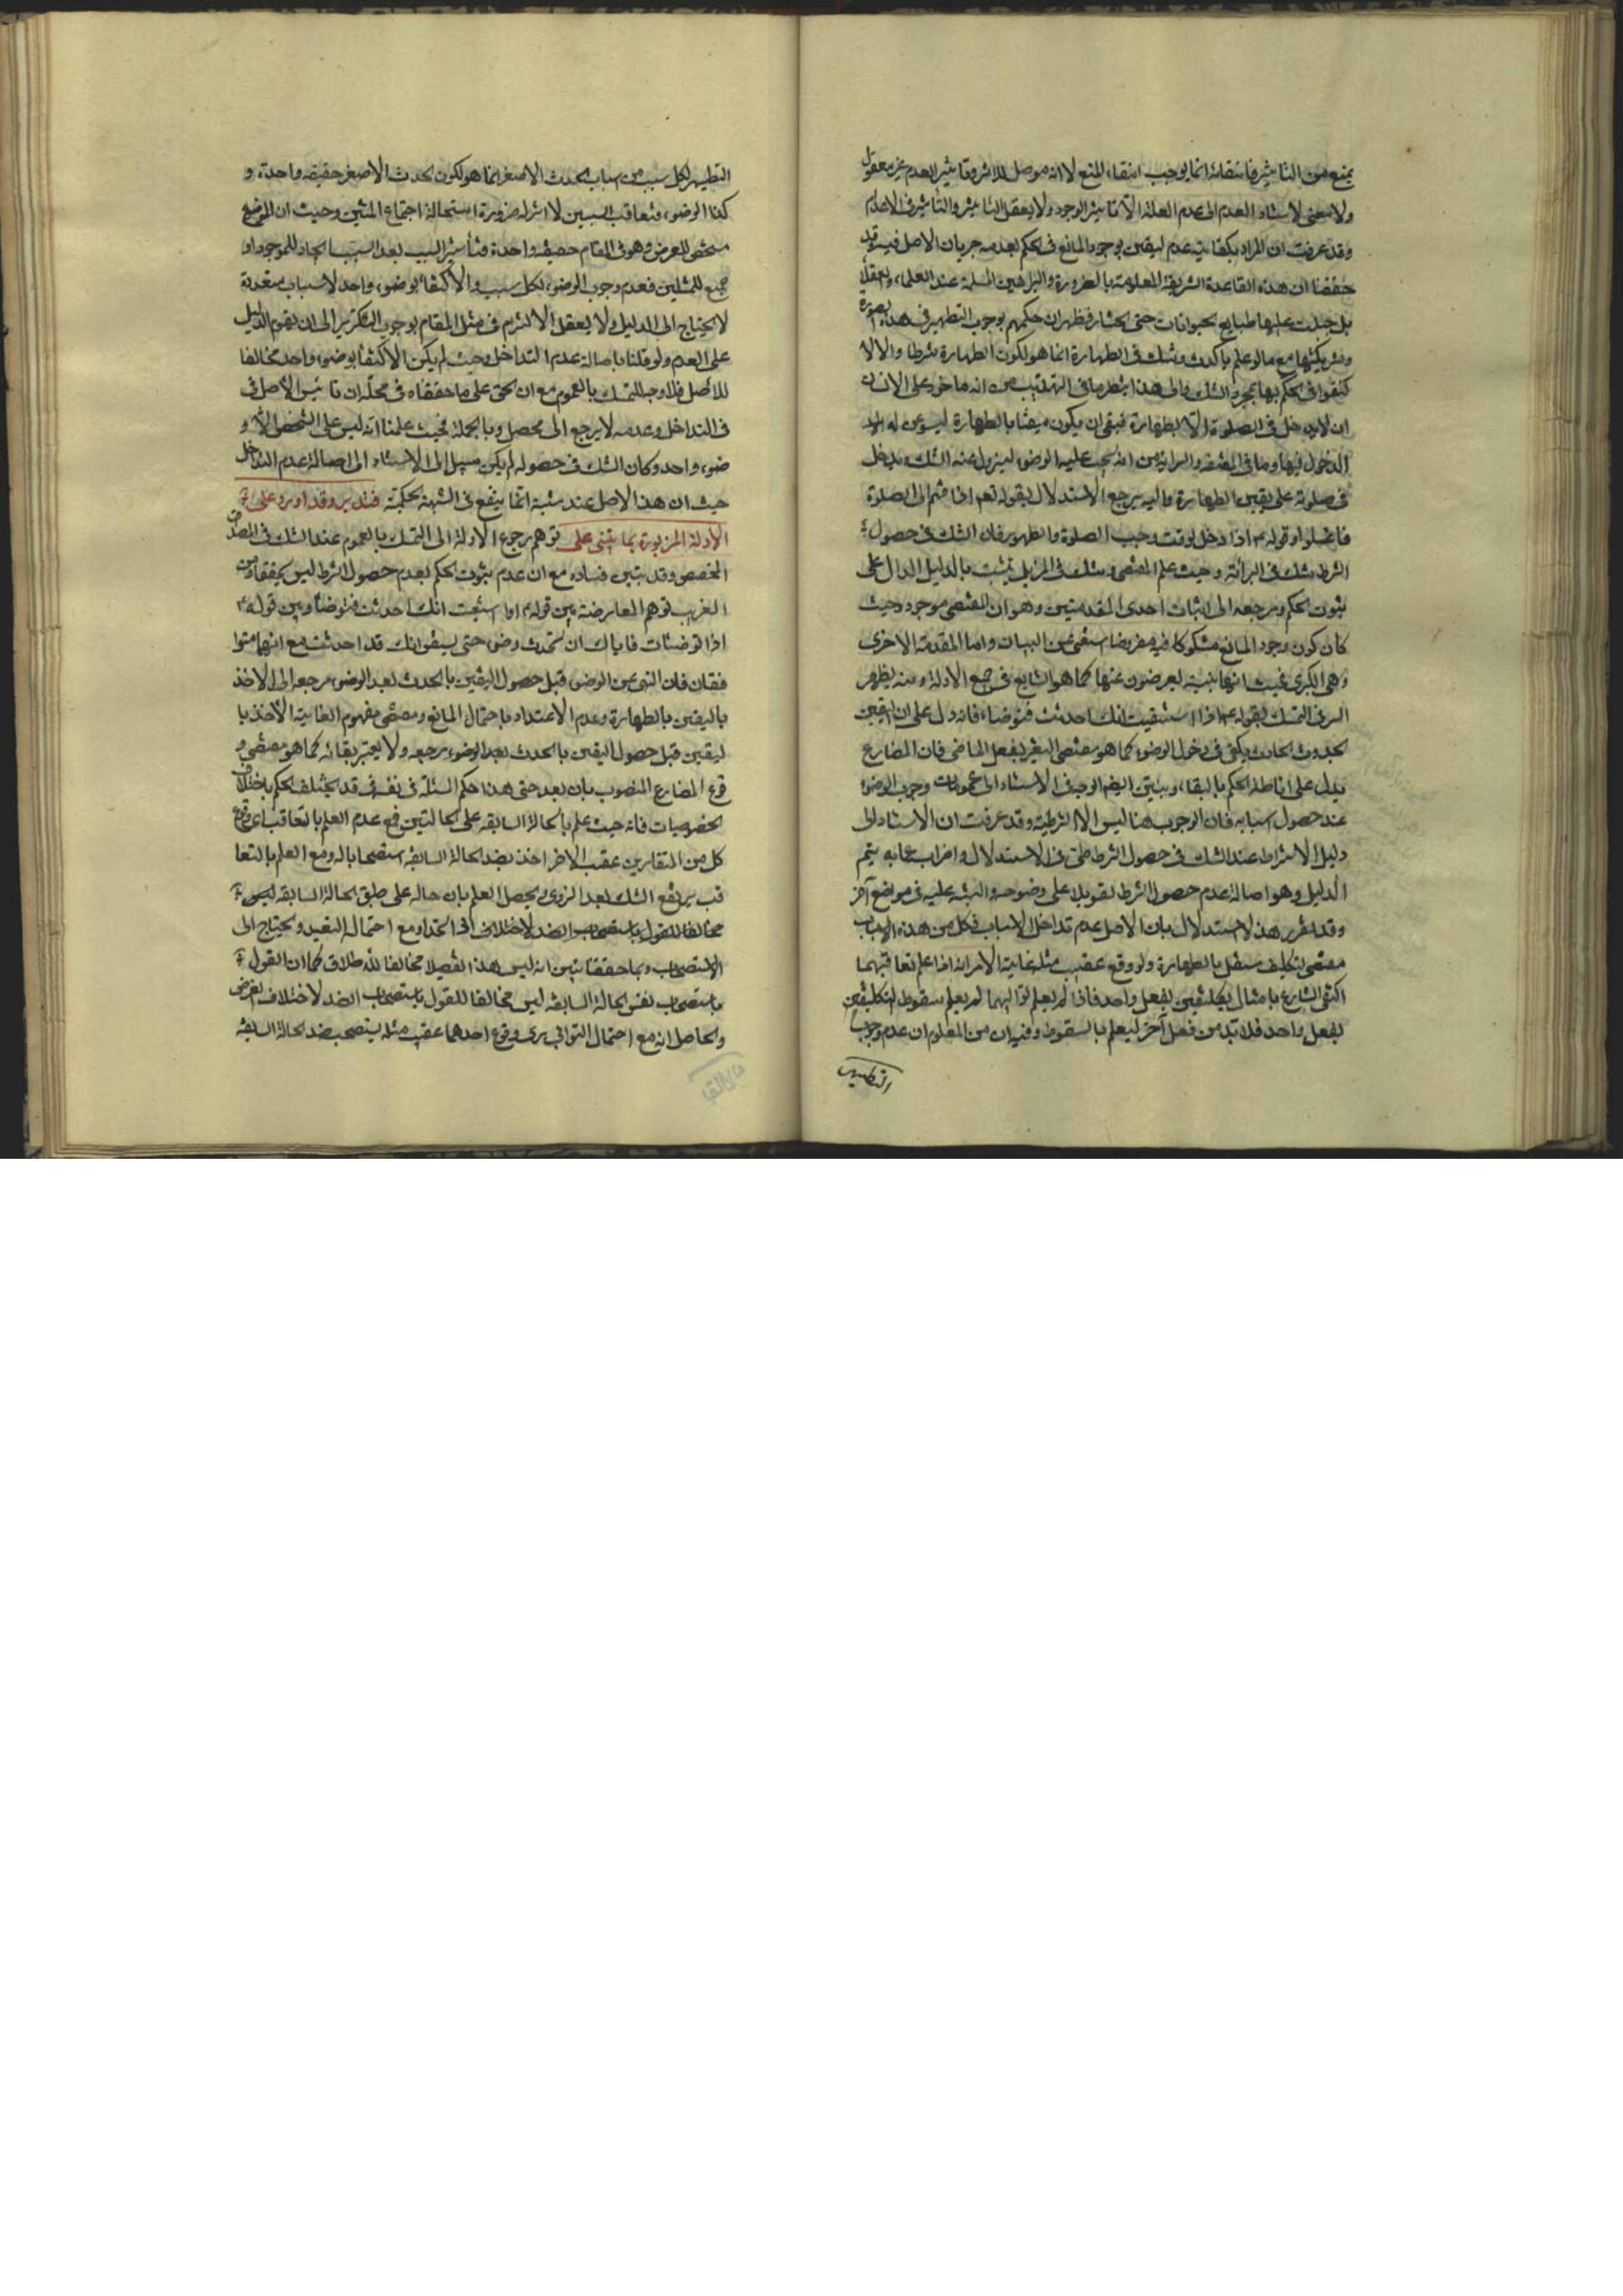 يمنع من التاثير فانتفائه انما يوجب انتفاء المنع لا انه موصل للاثر وتاثير العدم غير معقول
ولا معنى لاستناد العدم الى عدم العلة الا تاثير الوجود ولا يعقل التاثير والتأثر فى الاعدام
وقد عرفت ان المراد بكفاية عدم اليقين بوجود المانع فى الحكم بعدمه جريان الاصل فيه وقد
حققنا ان هذه القاعدة الشريفة المعلومة بالضرورة والبراهين المسلمة عند العلماء والعقلاء
بل جبلت عليها طبايع الحيوانات حتى الحشار فظهر ان حكمهم بوجوب التطهير فى هذه الصورة
وشريكتها مع ما لو علم بالحدث وشك فى الطهارة انما هو لكون الطهارة شرطا والا لا
كتفوا فى الحكم بها بمجرد الشك والى هذا ينظر ما فى التهذيب من انه ماخوذ على الانسان
ان لا يدخل فى الصلوة الا بطهارة فينبغى ان يكون متيقنا بالطهارة ليسوغ له
الدخول فيها وما فى المقنعة والسرائر من انه يجب عليه الوضوء ليزول عنه الشك ويدخل
فى صلوته على يقين الطهارة واليه يرجع الاستدلال بقوله تعم اذا قمتم الى الصلوة
فاغسلوا وقوله ع اذا دخل الوقت وجب الصلوة والطهور فان الشك فى حصول
الشرط شك فى البرائة وحيث علم المقتضى وشك فى المزيل يثبت بالدليل الدال على
ثبوت الحكم ومرجعه الى اثبات احدى المقدمتين وهو ان المقتضى موجود وحيث
كان كون وجود المانع مشكوكا فيه مفروضا استغنى عن البيان واما المقدمة الاخرى
وهى الكبرى فحيث انها بينة يعرضون عنها كما هو الشايع فى جميع الادلة ومنه يظهر
السر فى التمسك بقوله ع اذا استيقنت انك احدثت فتوضا فانه دل على ان اليقين
بحدوث الحادث يكفى فى دخول الوضوء كما هو مقتضى التعبير بفعل الماضى فان المضارع
يدل على اناطة الحكم بالبقاء ويتبين ايضم الوجه فى الاستناد الى عمومات وجوب الوضوء
عند حصول اسبابه فان الوجوب هنا ليس الا الشرطية وقد عرفت ان الاستناد الى
دليل الاشتراط عند الشك فى حصول الشرط طى فى الاستدلال واضراب عما به يتم
الدليل وهو اصالة عدم حصول الشرط تعويلا على وضوحه والتنبيه عليه فى مواضع آخر
وقد يقرر هذا الاستدلال بان الاصل عدم تداخل الاسباب فكل من هذه الاسباب
مقتضى لتكليف مستقل بالطهارة ولو وقع عقيب مثله غاية الامر انه اذا علم تعاقبهما
اكتفى الشارع بامتثال تكليفين بفعل واحد فاذا لم يعلم تواليهما لم يعلم سقوط التكليفين
بفعل واحد فلا بد من فعل آخر ليعلم بالسقوط وفيه ان من المعلوم ان عدم وجوب
التطهير
التطهير لكل سبب من اسباب الحدث الاصغر انما هو لكون الحدث الاصغر حقيقة واحدة و
كذا الوضوء فتعاقب السببين لا اثر له ضرورة استحالة اجتماع المثلين وحيث ان الموضوع
مشخص للعرض وهو فى المقام حقيقة واحدة فتأثير السبب بعد السبب ايجاد للموجود او
جمع للمثلين فعدم وجوب الوضوء لكل سبب والاكتفاء بوضوء واحد لاسباب متعددة
لا يحتاج الى الدليل ولا يعقل الالتزام فى مثل المقام بوجوب التكرير الى ان يقوم الدليل
على العدم ولو قلنا باصالة عدم التداخل وحيث لم يكن الاكتفاء بوضوء واحد مخالفا
للاصل فلا وجه للتمسك بالعموم مع ان الحق على ما حققناه فى محله ان تاسيس الاصل فى
فى التداخل وعدمه لا يرجع الى محصل وبالجملة فحيث علمنا انه ليس على الشخص الا و
ضوء واحد وكان الشك فى حصوله لم يكن سبيل الى الاستناد الى اصالة عدم التداخل
حيث ان هذا الاصل عند مثبته انما ينفع فى الشبهة الحكمية فتدبر وقد اورد على
الادلة المزبورة بما يبتنى على توهم رجوع الادلة الى التمسك بالعموم عند الشك فى المصداق
المخصص وقد تبين فساده مع ان عدم ثبوت الحكم بعدم حصول الشرط ليس تخصيصا ومن
الغريب توهم المعارضة بين قوله ع اذا استيقنت انك احدثت فتوضا وبين قوله ع
اذا توضئات فاياك ان تحدث وضوء حتى تستيقن انك قد احدثت مع انهما متوا
فقان فان النهى عن الوضوء قبل حصول اليقين بالحدث بعد الوضوء مرجعه الى الاخذ
باليقين بالطهارة وعدم الاعتداد باحتمال المانع ومقتضى مفهوم الغاية الاخذ با
ليقين قبل حصول اليقين بالحدث بعد الوضوء مرجعه ولا يعتبر بقائه كما هو مقتضى و
قوع المضارع المنصوب بان بعد حتى هذا حكم المسئلة فى نفسه وقد يختلف الحكم باختلاف
الخصوصيات فانه حيث علم بالحالة السابقة على الحالتين فمع عدم العلم بالتعاقب اى وقوع
كل من المتقاربين عقب الاخر اخذ بضد الحالة السابقة استصحابا له ومع العلم بالتعا
قب يرتفع الشك بعد التروى ويحصل العلم بان حاله على طبق الحالة السابقة ليس
مخالفا للقول باستصحاب الضد لاختلاف الى اتحدا ومع احتمال التعدد ويحتاج الى
الاستصحاب وبما حققنا تبين انه ليس هذا التفصيل مخالفا للاطلاق كما ان القول
باستصحاب نفس الحالة السابقة ليس مخالفا للقول باستصحاب الضد لاختلاف الفرض
والحاصل انه مع احتمال التوالى يرى وقوع احدهما عقيب مثله يستصحب ضد الحالة السابقة